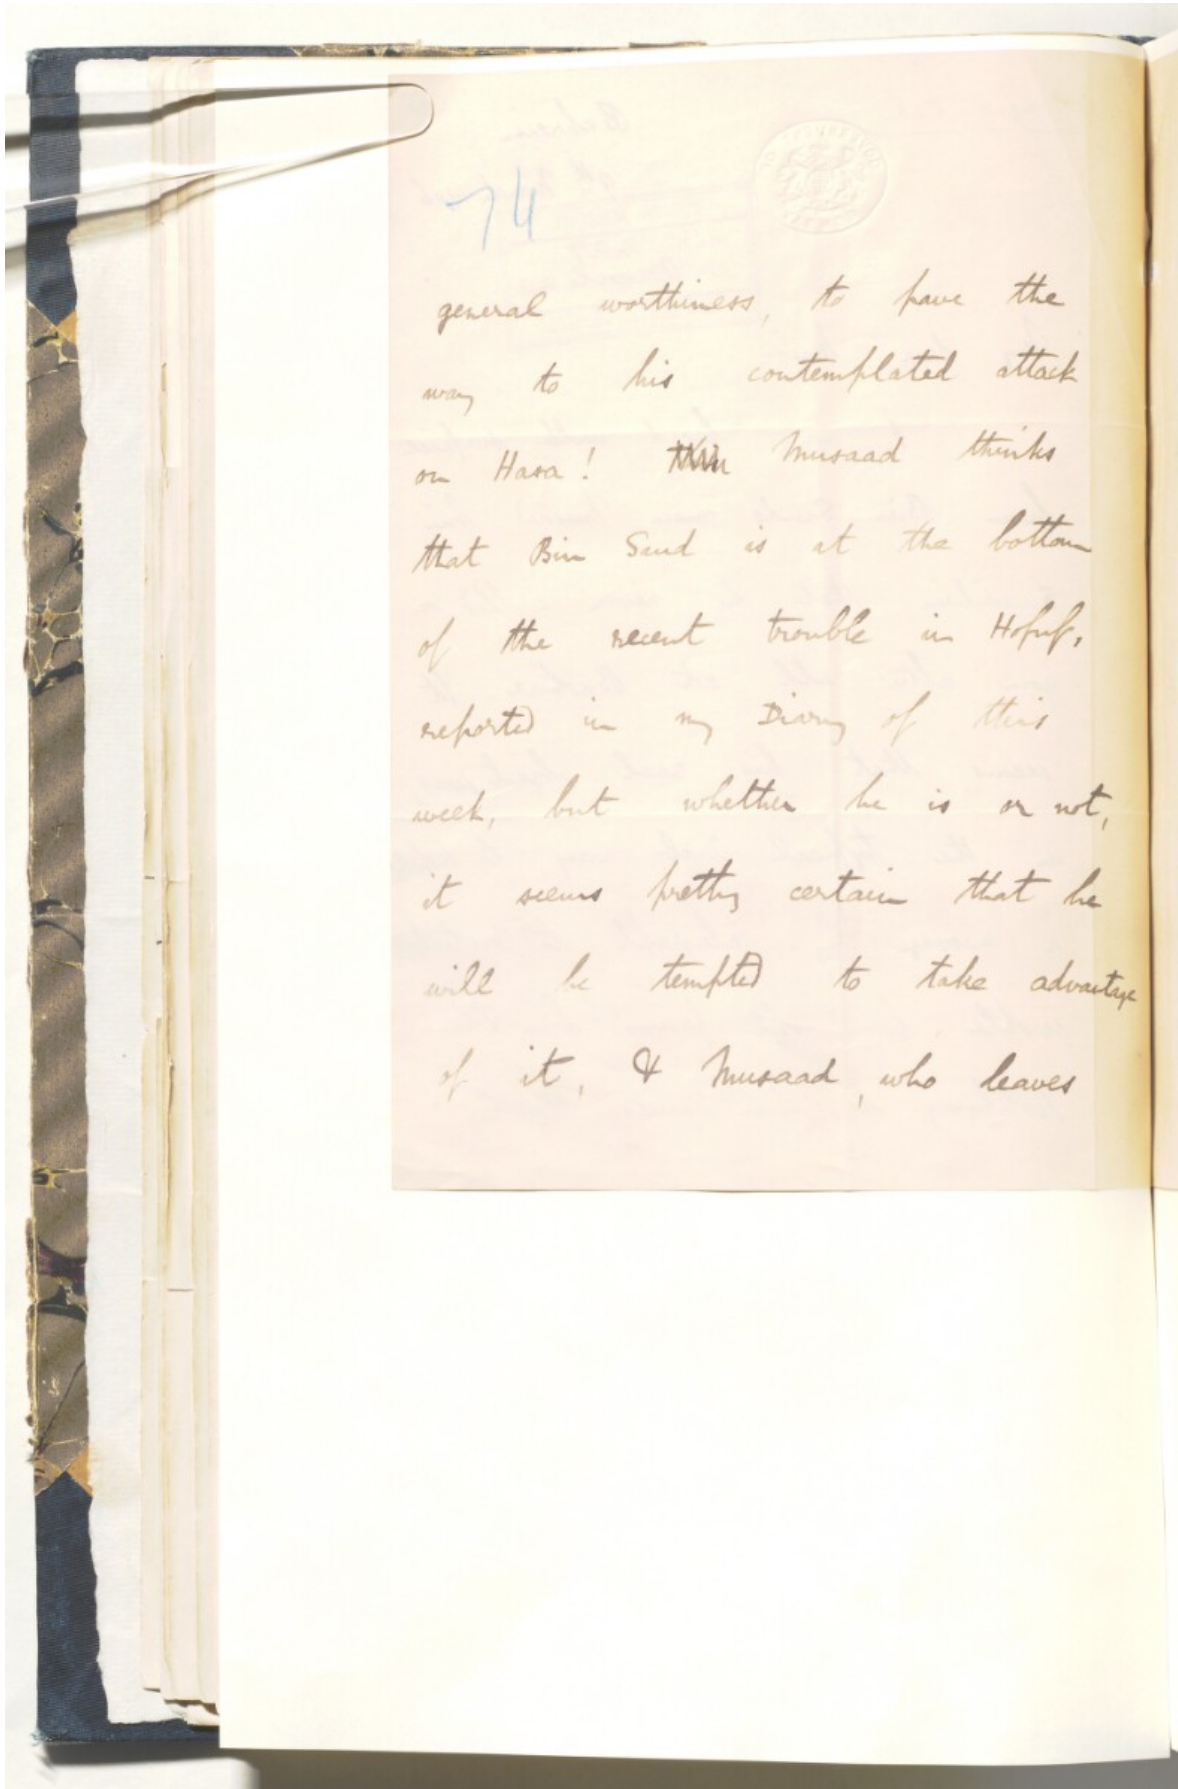 74
general worthiness, to pave the
way to his contemplated attack
on Hasa! Musaad thinks
that Bin Saud is at the bottom
of the recent trouble in Hofuf,
reported in my Diary of this
week, but whether he is or not,
it seems pretty certain that he
will be tempted to take advantage
of it, & Musaad, who leaves